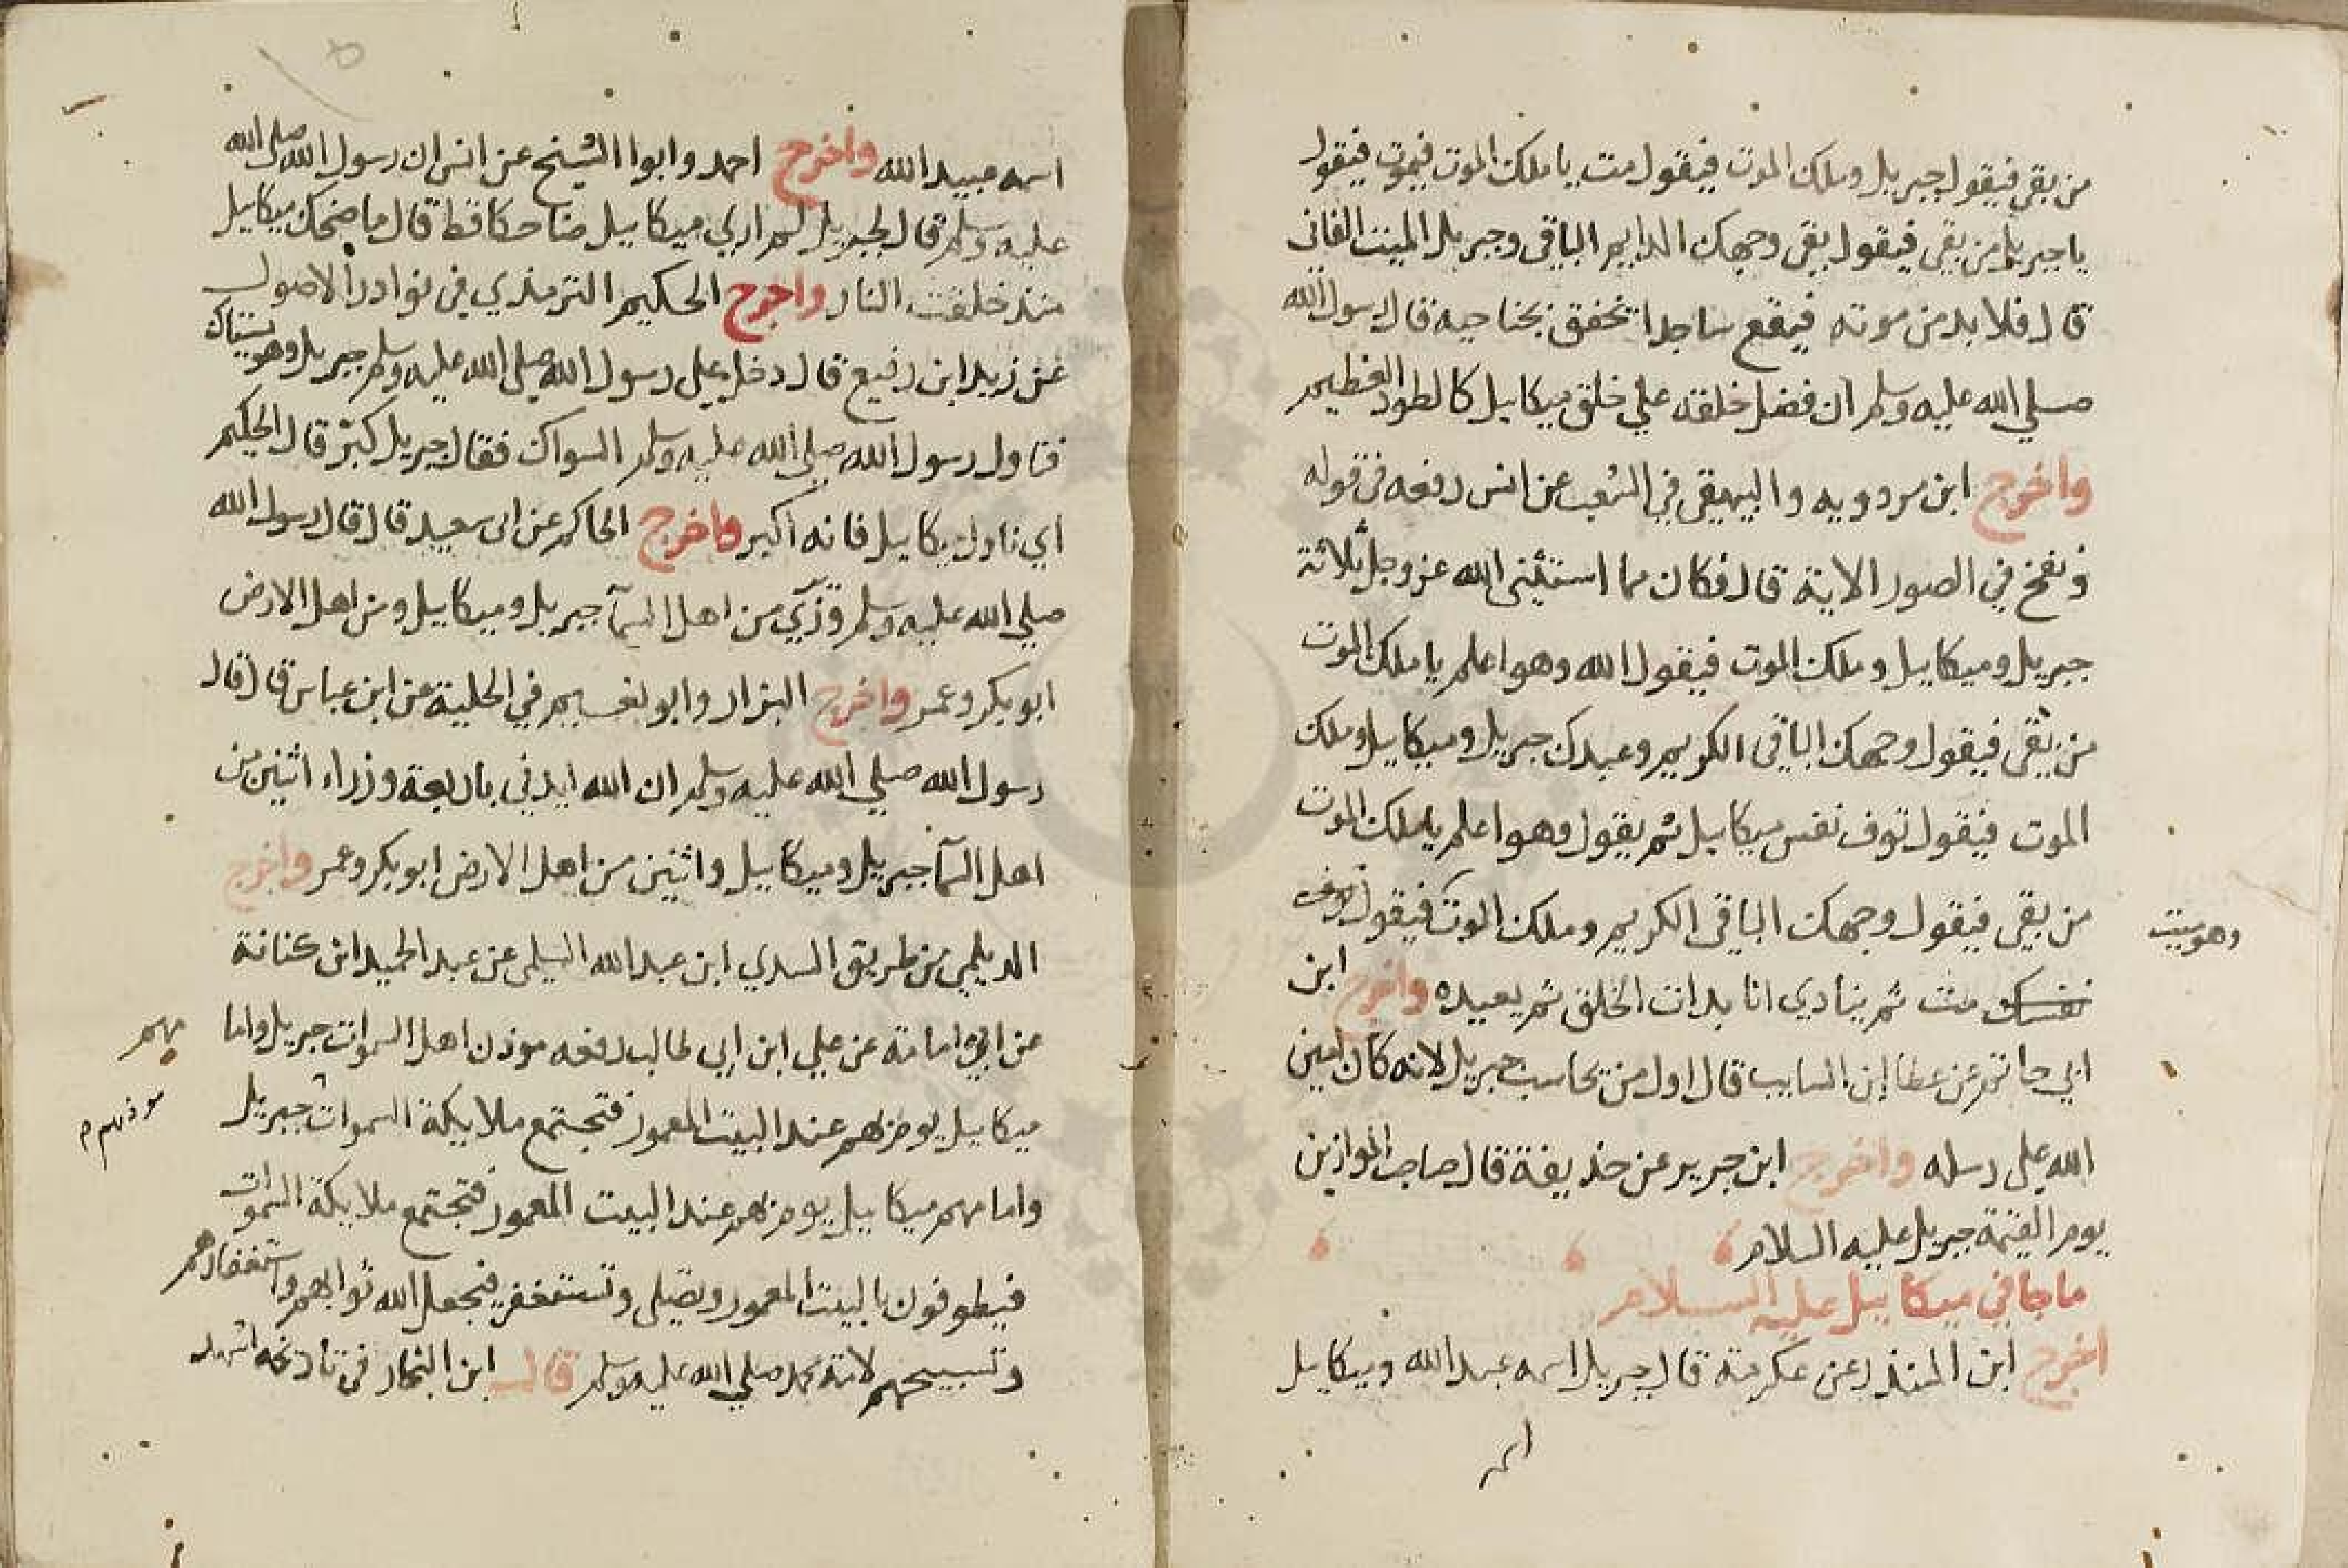 من بقي فيقول جبريل وملك الموت فيقول مت يا ملك الموت فيموت فيقول
يا جبريل من بقي فيقول بقي وجهك الدايم الباقي وجبريل الميت الفاني
قال فلا بد من موته فيقع ساجدا يخفق بجناحيه قال رسول الله
صلي الله عليه وسلم ان فضل خلقه علي خلق ميكاييل كالطود العظيم
واخرج ابن مردويه والبيهقي في الشعب عن انس رفعه في قوله
ونفخ في الصور الاية قال فكان مما استثني الله عز وجل ثلاثة
جبريل وميكاييل وملك الموت فيقول الله وهو اعلم يا ملك الموت
من بقي فيقول وجهك الباقي الكريم وعبدك جبريل وميكاييل وملك
الموت فيقول توف نفس ميكاييل ثم يقول وهو اعلم يا ملك الموت
من بقي فيقول وجهك الباقي الكريم وملك الموت فيقول
وهو ميت
نفسك مت ثم ينادي انا بدات الخلق ثم يعيده واخرج ابن
ابي حاتم عن عطا ابن السايب قال اول من يحاسب جبريل لانه كان امين
الله علي رسله واخرج ابن جرير عن حذيفة قال صاحب الموازين
يوم القيمة جبريل عليه السلام
ما جا في ميكاييل عليه السلام
اخرج ابن المنذر عن عكرمة قال جبريل اسمه عبد الله وميكاييل
اسمه
اسمه عبيد الله واخرج احمد وابوا الشيخ عن انس ان رسول الله صلي الله
عليه وسلم قال لجبريل لم اري ميكاييل ضاحكا قط قال ما ضحك ميكاييل
منذ خلقت النار واخرج الحكيم الترمذي في نوادر الاصول
عن زيد ابن رفيع قال دخل علي رسول الله صلي الله عليه وسلم جبريل وهو يستاك
فناول رسول الله صلي الله عليه وسلم السواك فقال جبريل كبر قال الحكيم
اي ناول ميكاييل فانه اكبر واخرج الحاكم عن ابي سعيد قال قال رسول الله
صلي الله عليه وسلم وزيري من اهل السمآ جبريل وميكاييل ومن اهل الارض
ابو بكر وعمر واخرج البزار وابو نعيم في الحلية عن ابن عباس قال قال
رسول الله صلي الله عليه وسلم ان الله ايدني باربعة وزراء اثنين من
اهل السمآ جبريل وميكاييل واثنين من اهل الارض ابو بكر وعمر واخرج
الديلمي من طريق السدي ابن عبد الله السلمي عن عبد الحميد ابن كنانة
عن ابي امامة عن علي ابن ابي طالب رفعه موذن اهل السموات جبريل واما
مهم
ميكاييل يومزهم عند البيت المعمور فتجتمع ملايكة السموات جبريل
موذنهم
واما مهم ميكاييل يومزهم عند البيت المعمور فتجتمع ملايكة السموات
فيطوفون بالبيت المعمور وتصلي وتستغفر فيجعل الله ثوابهم واستغفارهم
وتسبيحهم لامة محمد صلي الله عليه وسلم قال ابن النجار في تاريخه